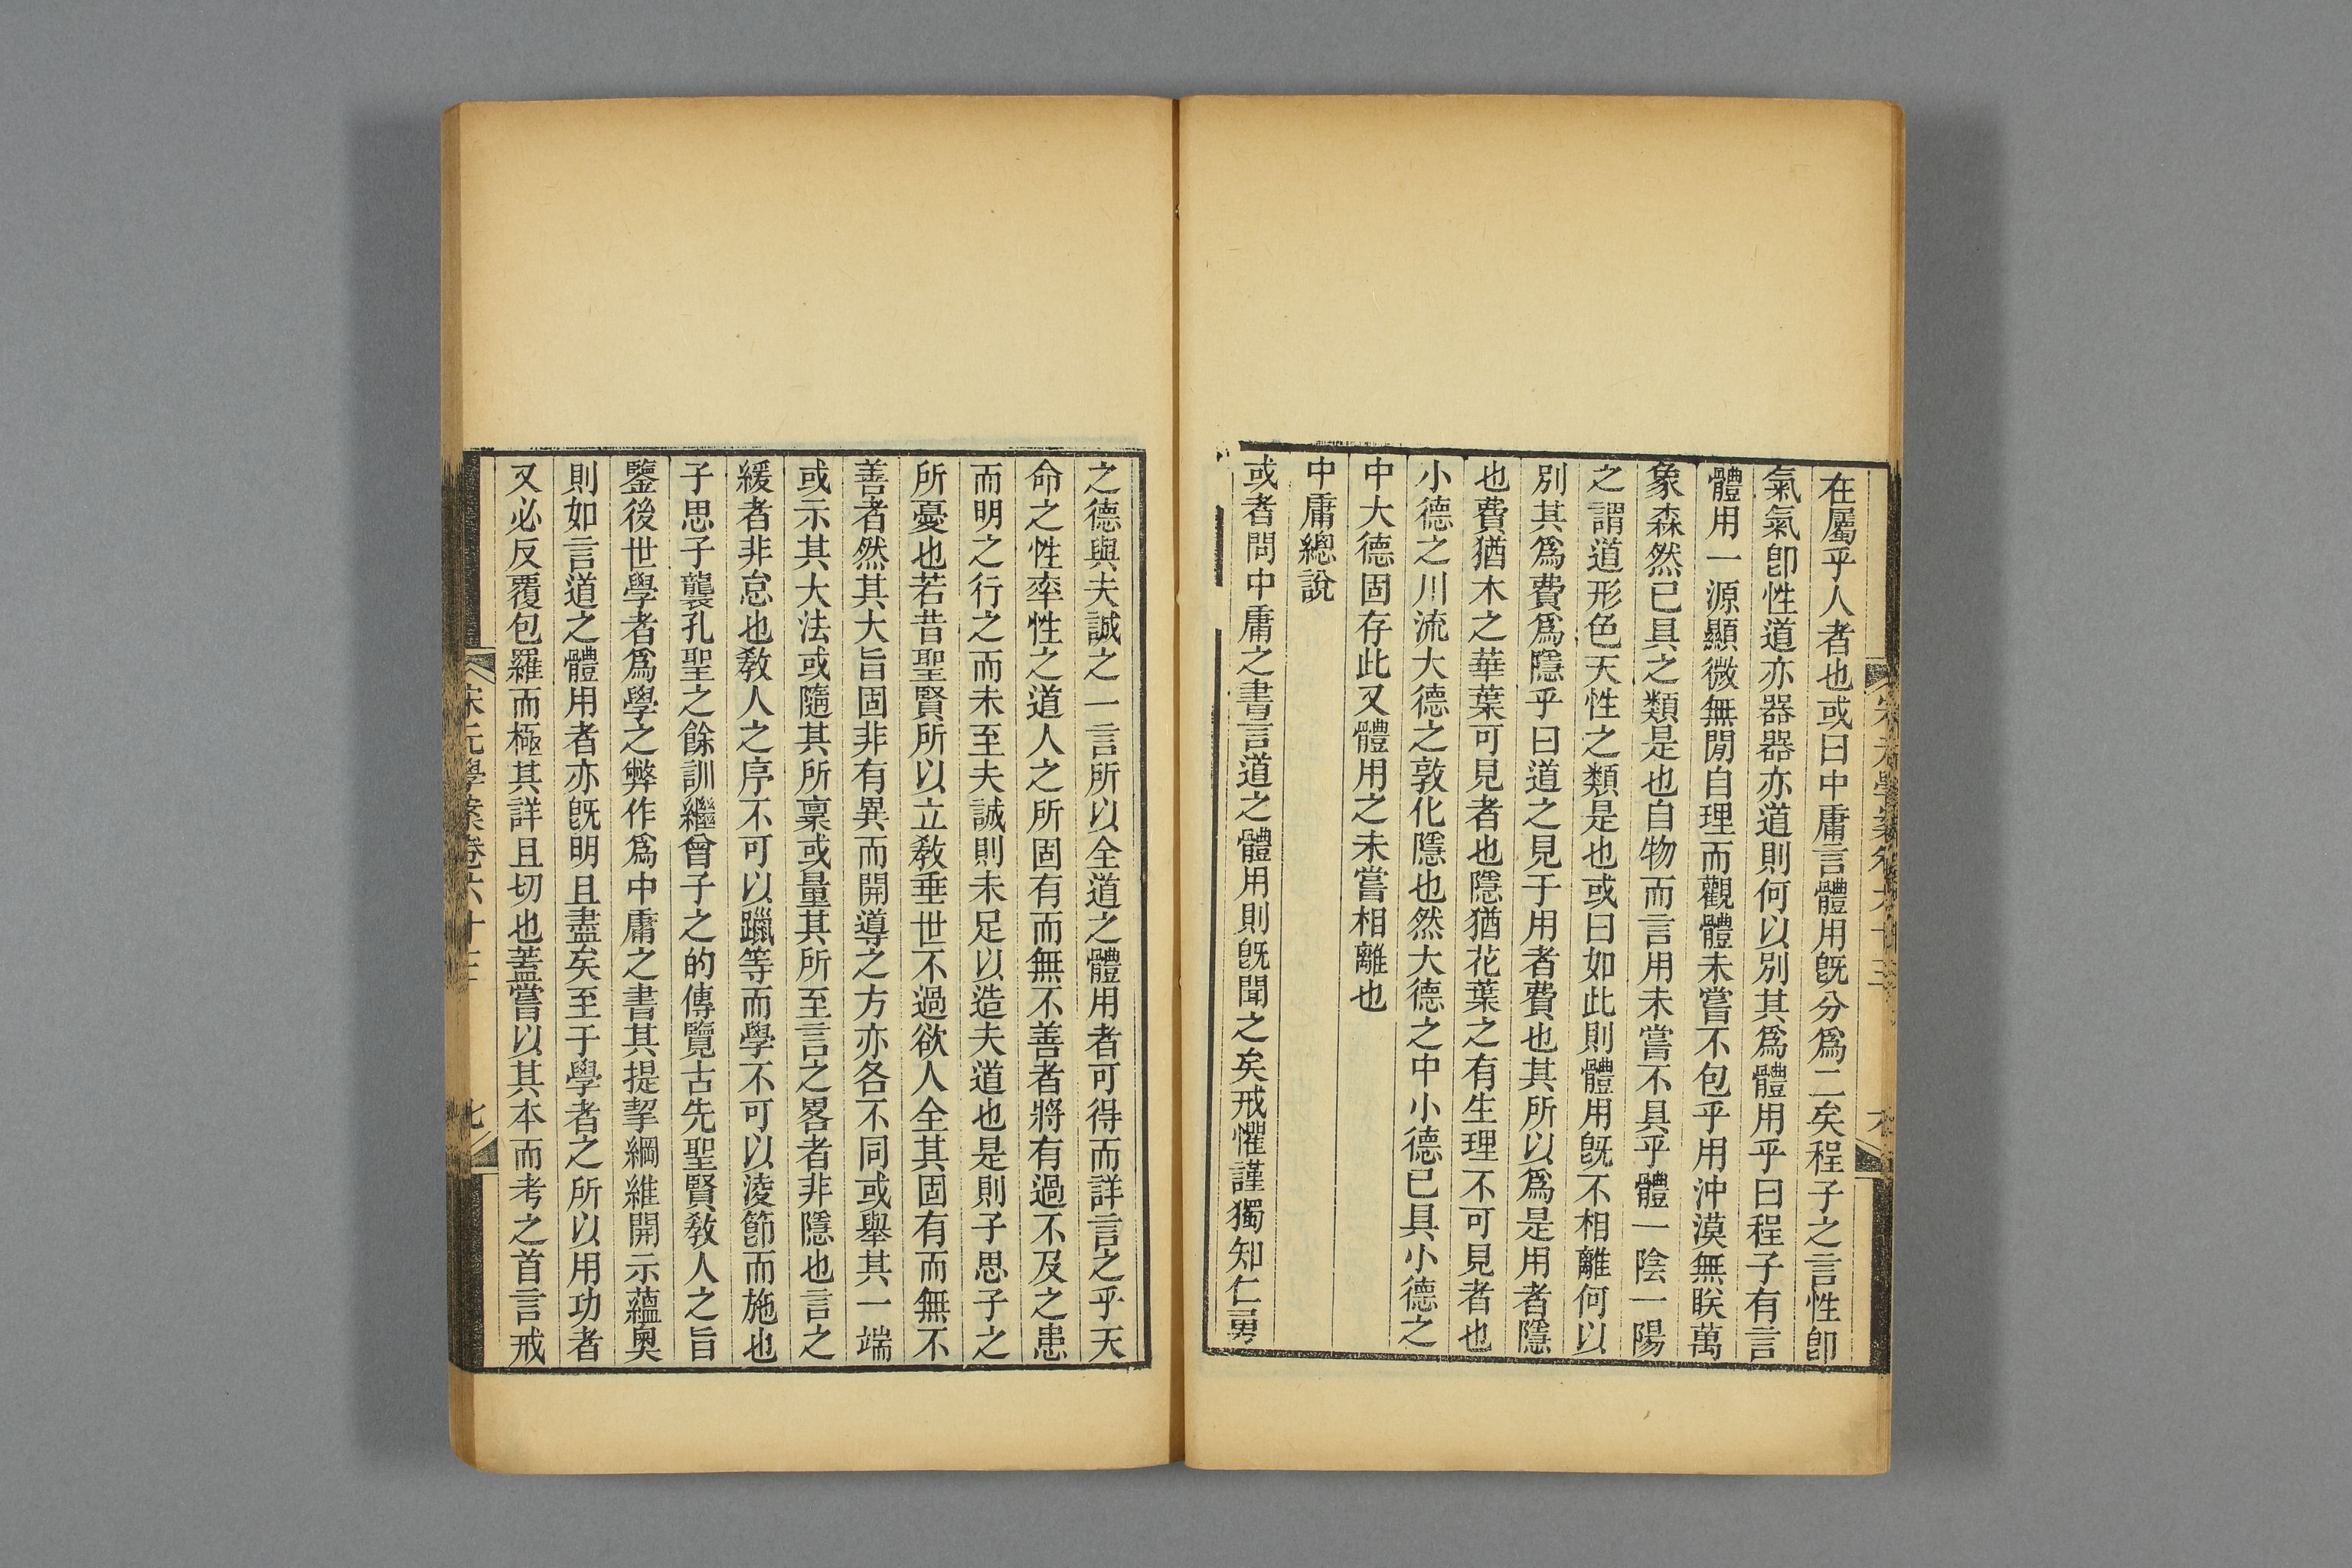 在屬乎人者也或曰中庸言體用旣分爲二矣程子之言性卽
氣氣卽性道亦器器亦道則何以別其爲體用乎曰程子有言
體用一源顯微無閒自理而觀體未嘗不包乎用沖漠無眹萬
象森然已具之類是也自物而言用未嘗不具乎體一陰一陽
之謂道形色天性之類是也或曰如此則體用旣不相離何以
別其爲費爲隱乎曰道之見于用者費也其所以爲是用者隱
也費猶木之華葉可見者也隱猶花葉之有生理不可見者也
小德之川流大德之敦化隱也然大德之中小德已具小德之
中大德固存此又體用之未嘗相離也
中庸總說
或者問中庸之書言道之體用則旣聞之矣戒懼謹獨知仁勇
之德與夫誠之一言所以全道之體用者可得而詳言之乎天
命之性率性之道人之所固有而無不善者將有過不及之患
而明之行之而未至夫誠則未足以造夫道也是則子思子之
所憂也若昔聖賢所以立敎垂世不過欲人全其固有而無不
善者然其大旨固非有異而開導之方亦各不同或舉其一端
或示其大法或隨其所稟或量其所至言之畧者非隱也言之
緩者非怠也敎人之序不可以躐等而學不可以淩節而施也
子思子襲孔聖之餘訓繼曾子之的傳覽古先聖賢敎人之旨
鑒後世學者爲學之弊作爲中庸之書其提挈綱維開示蘊奧
則如言道之體用者亦旣明且盡矣至于學者之所以用功者
又必反覆包羅而極其詳且切也蓋嘗以其本而考之首言戒
宋元學案卷六十三
七